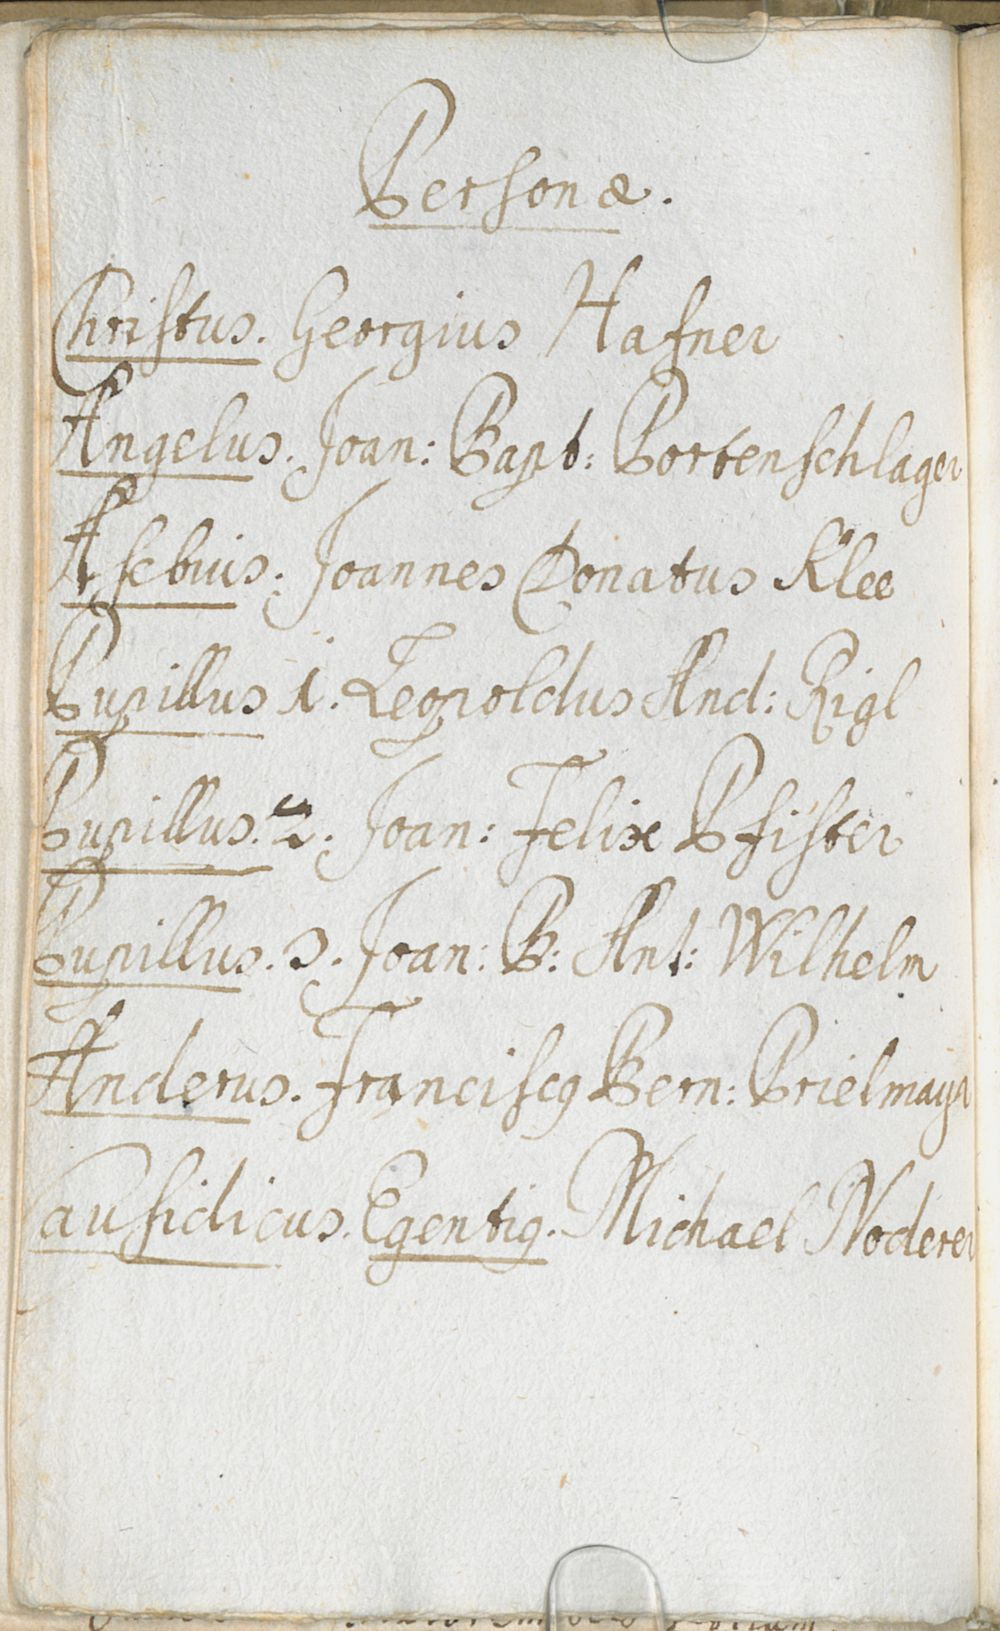 Personæ.
Christus. Georgius Hafner
Angelus. Joan: Bapt: Portenschlager
Asebius. Joannes Donatus Klee
Pupillus 1. Leopoldus And: Rigl
Pupillus. 2. Joan: Felix Pfister
Pupillus. 3. Joan: B: Ant: Wilhelm
Anderus. Franciscq Bern: Prielmayr
Causidicus. Egentiq. Michael Noderer